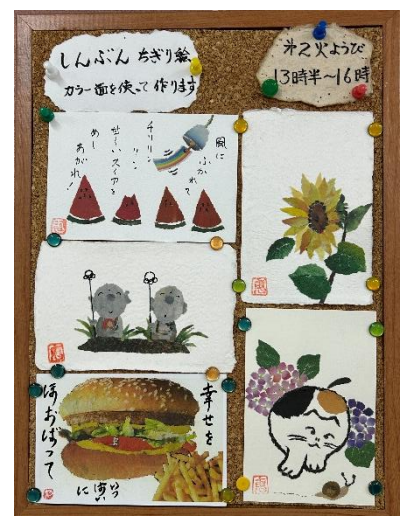 しんぶん ちぎり絵
カラー面を使って 作ります
第2火ようび
13時半～16時
風に
ふかれて
チリリン
リン
甘〜いスイカを
めし
あがれ！
幸せを
ほおばって
いっ
ぱい
に